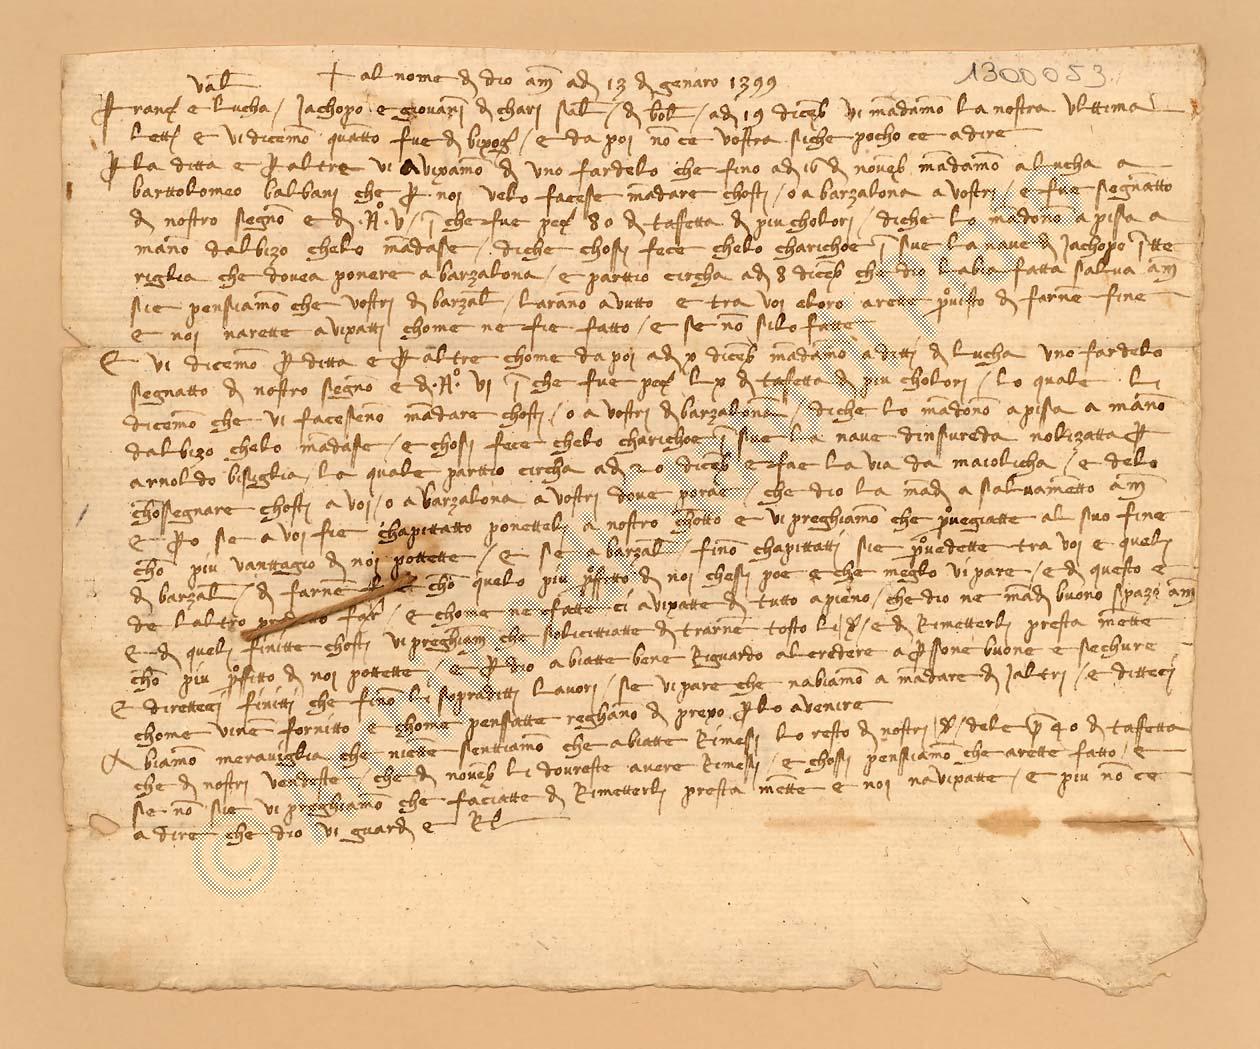 + al nome di dio am adi 13 di genaro 1399
1300053
val
Franc e lucha / Jachopo e giovani di chari sal / di bol / adi 19 diceb vi madamo la nostra ultima
lett e vi dicemo quatto fue di bixog / e da poi no ce vostra siche pocho ce a dire
P la ditta e p altre vi avixamo di uno fardelo che fino adi di noveb madamo a lucha a
barttolomeo balbani che p noi velo facesse madare chosti / o a barzalona a vostri / e fue segnatto
di nostro segno e di No V / i che fue pez 80 di taffetta di piu cholori / diche lo madono a pissa a
mano dalbizo chelo madase / diche chosi fece chelo charichoe i sue la nave di Jachopo itte
riglia che dovea ponere a barzalona / e parttio circha adi 8 diceb che dio labia fatta salva am
sie pensiamo che vostri di barzal / larano avutto e tra voi eloro arette pvisto di farne fine
e noi narette avixatti chome ne fie fatto / e se no silo fatte
E vi dicemo p ditta e p altre chome da poi adi x diceb madamo a ditti di lucha uno fardelo
segnatto di nostro segno e di No VI i che fue pez lx di taffetta di piu cholori / lo quale li
dicemo che vi faceseno madare chosti / o a vostri di barzalona / diche lo madono a pissa a mano
dalbizo chelo madase / e chosi fece chelo charichoe i sue la nave dinsureda nolizatta p
arnoldo bisuglia / la quale parttio circha adi 20 diceb e fae la via da maiolicha / e delo
chosegnare chosti a voi / o a barzalona a vostri dove porae / che dio la madi a salvametto am
E po se a voi fie chapittatto ponetteli a nostro chotto e vi preghiamo che pvegiatte al suo fine
cho piu vanttagio di noi pottette / E se a barzal fino chapittatti sie pvedette tra voi e queli
di barzal / di farne cho quelo piu pfitto di noi chesi poe e che meglo vi pare / e di questo e
de laltro far / e chome ne fatte ci avixatte di tutto apieno / che dio ne madi buono spazo am
E di queli finitte chosti vi preghiam che solicittiatte di trarne tosto li d / e di Rimetterli presta mette
cho piu pfitto di noi pottette / e p dio abiatte bene Riguardo al credere a psone buone e sechure
E diretteci finitti che fino li sopraditti lavori / se vi pare che nabiamo a madare di jaltri / e ditteci
chome vine fornitto e chome pensatte reghano di prexo p lo avenire
Abiamo meraviglia che niette senttiamo che abiatte Rimesi lo resto di nostri d / dele p 40 di taffetta
che di nostri vendeste / che di noveb li dovreste avere Rimesi / e chosi pensiamo che arette fatto / e
se no sie vi preghiamo che faciatte di Rimetterli presta mette e noi navixatte / e piu no ce
a dire che dio vi guardi e